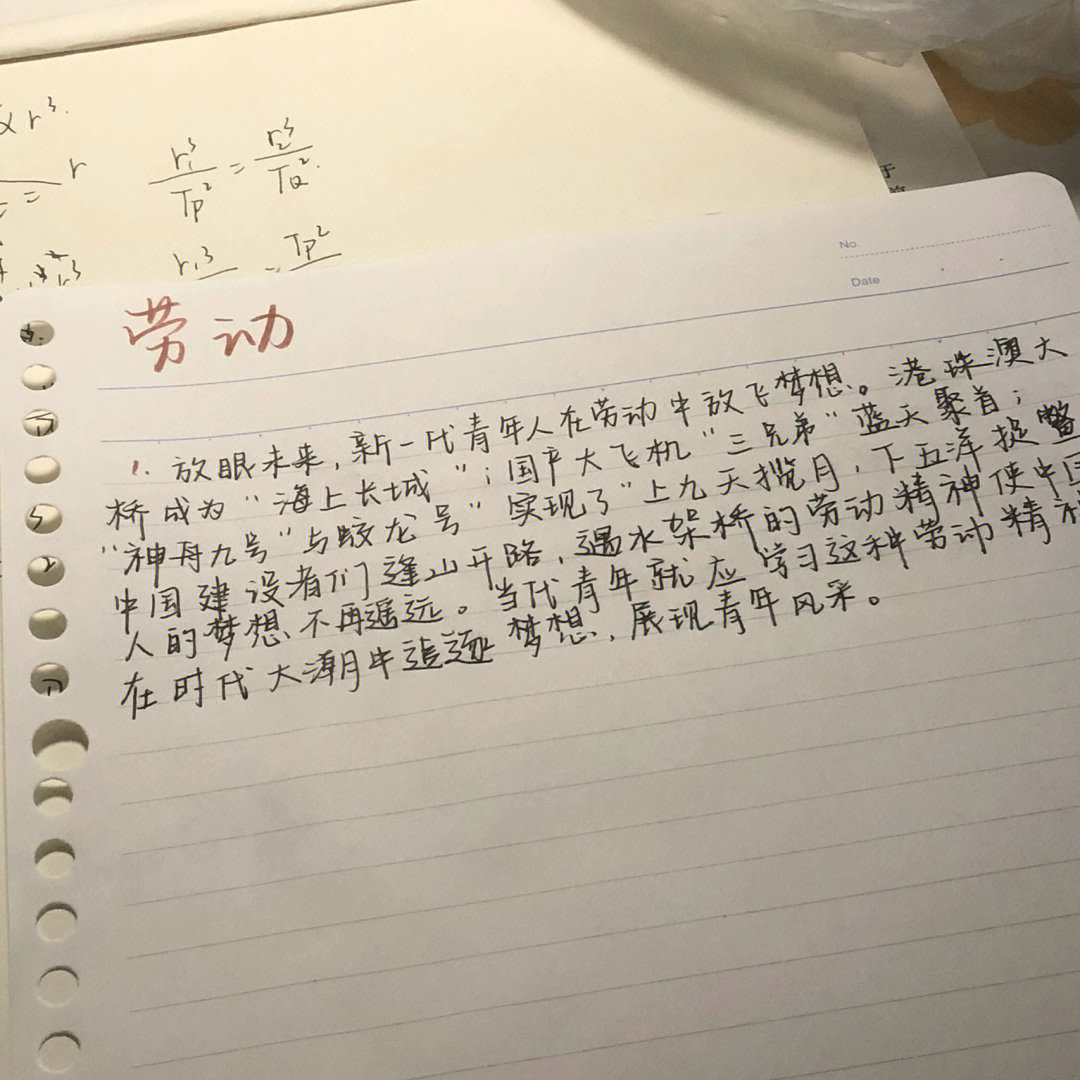 α r³.
r
r₁³ / Tp² = r₂³ / TQ².
r₁³
Tp²
r³
于
No.
Date
劳动
1. 放眼未来,新一代青年人在劳动中放飞梦想。港珠澳大
桥成为“海上长城”;国产大飞机“三兄弟”蓝天聚首;
“神舟九号”与蛟龙号”实现了“上九天揽月,下五洋捉鳖
中国建设者们逢山开路,遇水架桥的劳动精神使中国
人的梦想不再遥远。当代青年就应学习这种劳动精神
在时代大潮中追逐梦想,展现青年风采。